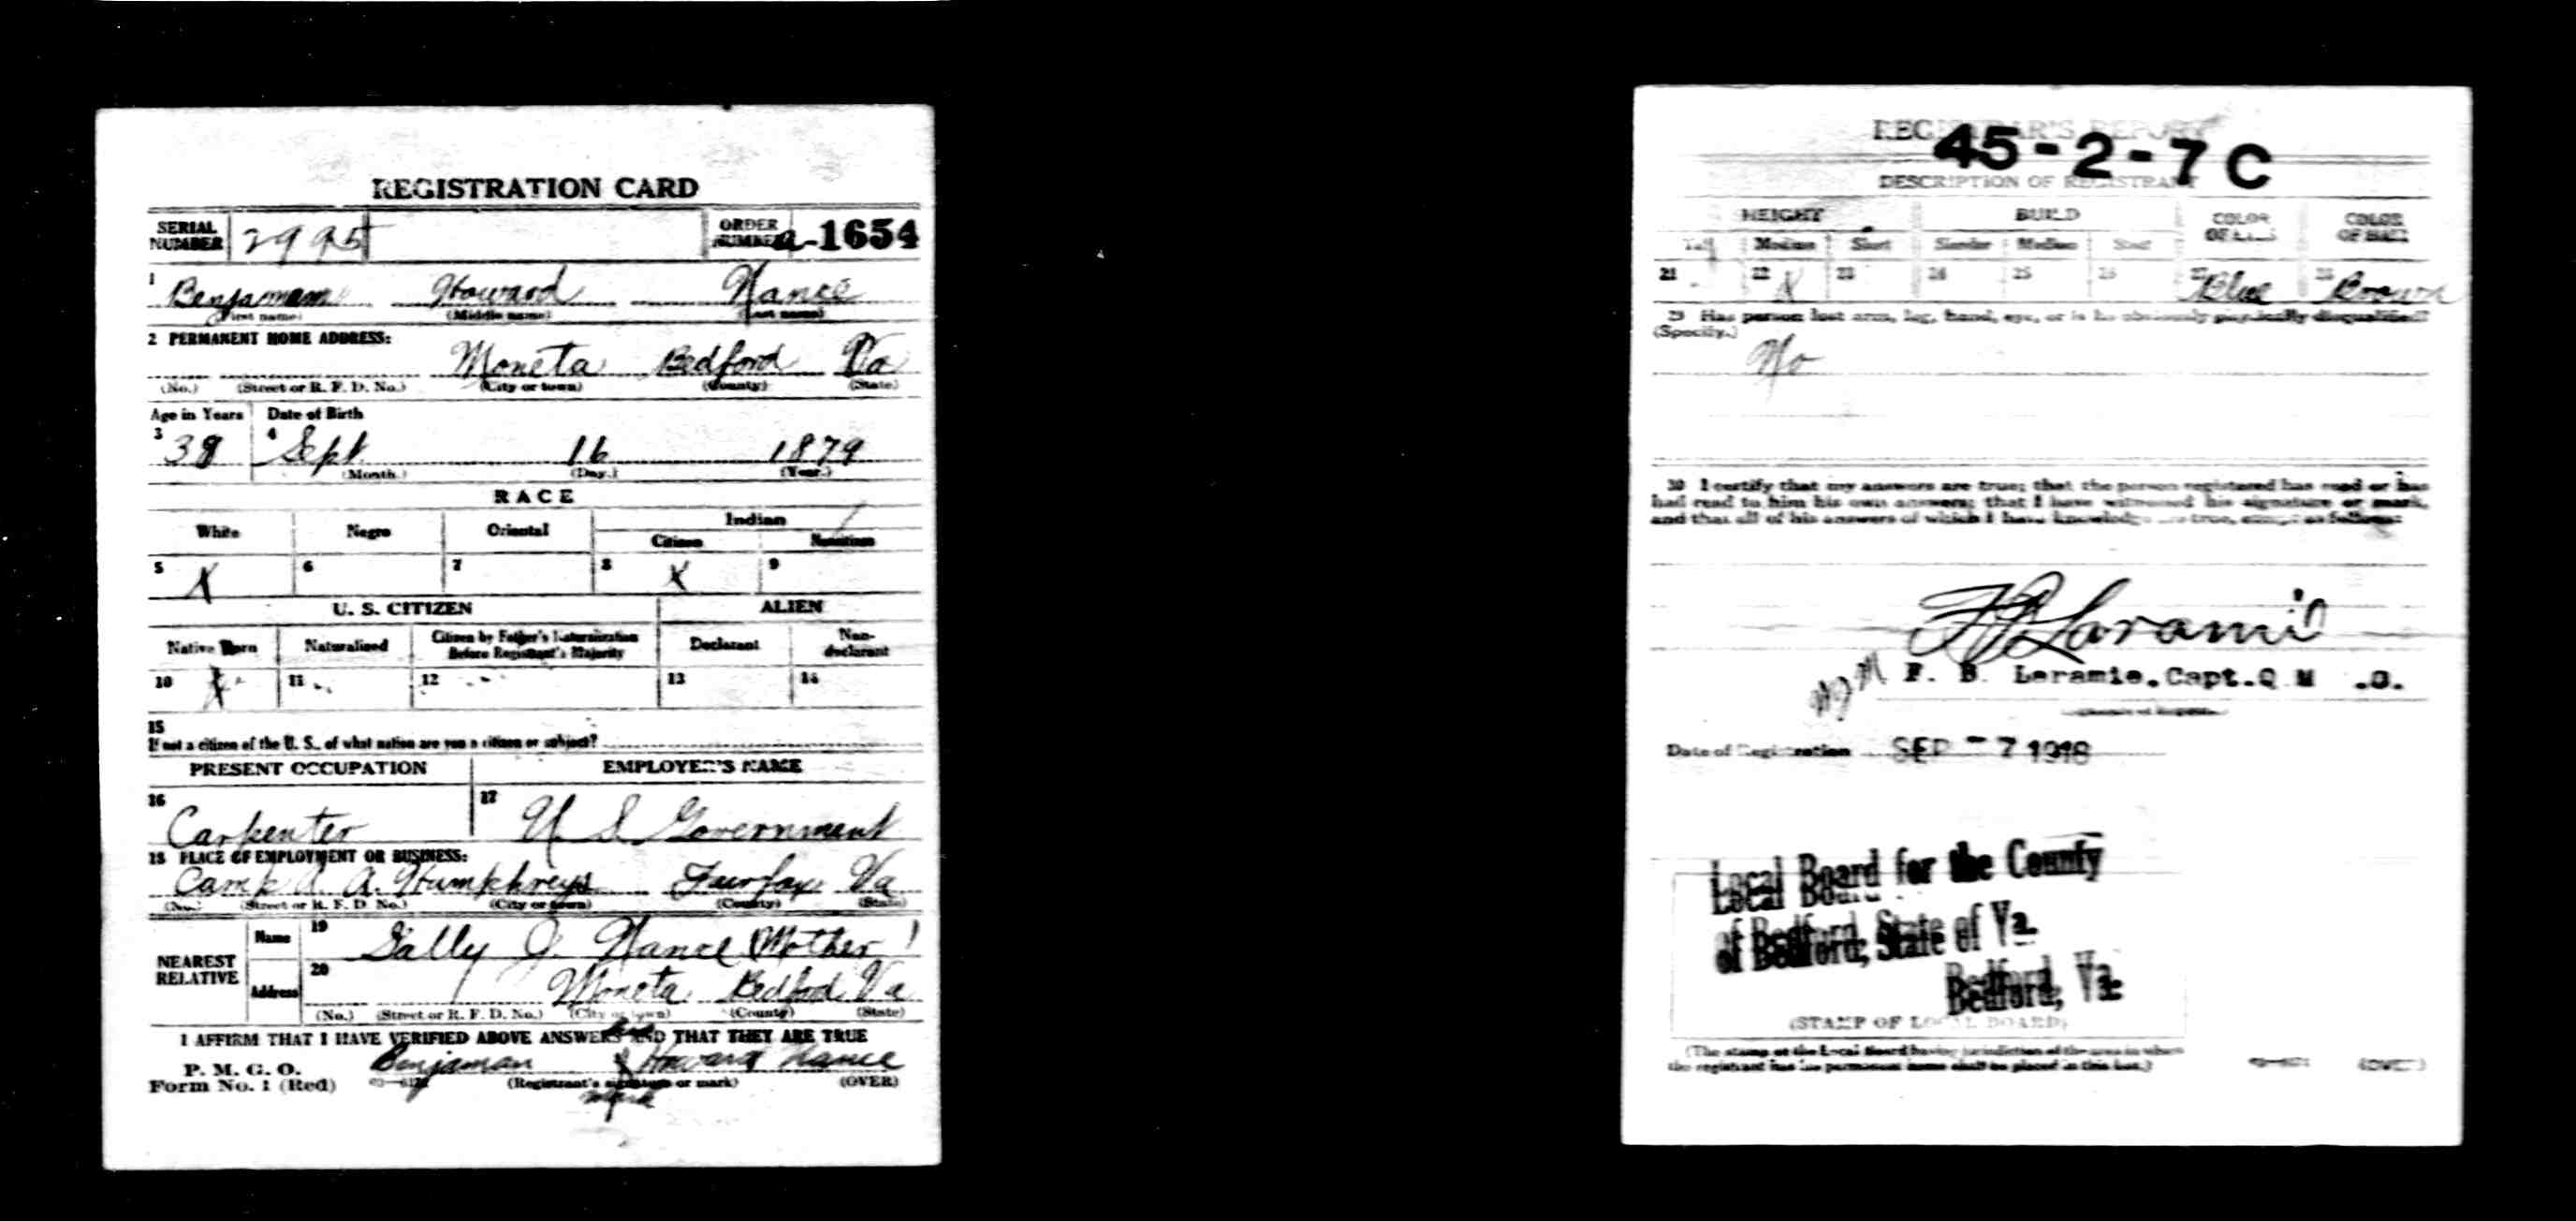 REGISTRATION CARD
SERIAL NUMBER 2995 ORDER NUMBER a-1654
1 Benjamen Howard Nance
(First name) (Middle name) (Last name)
2 PERMANENT HOME ADDRESS:
Moneta Bedford Va
(No.) (Street or R. F. D. No.) (City or town) (County) (State)
Age in Years Date of Birth
3 38 4 Sept. 16 1879
(Month.) (Day.) (Year.)
RACE
White Negro Oriental Indian
Citizen Noncitizen
5 X 6 7 8 X 9
U. S. CITIZEN ALIEN
Native Born Naturalized Citizen by Father's Naturalization Before Registrant's Majority Declarant Non-declarant
10 X 11 12 13 14
15
If not a citizen of the U. S., of what nation are you a citizen or subject?
PRESENT OCCUPATION EMPLOYER'S NAME
16 Carpenter 17 U. S. Government
18 PLACE OF EMPLOYMENT OR BUSINESS:
Camp A. A. Humphreys Fairfax Va
(No.) (Street or R. F. D. No.) (City or town) (County) (State)
NEAREST RELATIVE Name 19 Sally J. Nance (Mother)
Address 20 Moneta Bedford Va
(No.) (Street or R. F. D. No.) (City or town) (County) (State)
I AFFIRM THAT I HAVE VERIFIED ABOVE ANSWERS AND THAT THEY ARE TRUE
his
P. M. G. O. Benjaman X Howard Nance
Form No. 1 (Red) (Registrant's signature or mark) (OVER)
mark
REGISTRAR'S REPORT
45-2-7 C
DESCRIPTION OF REGISTRANT
HEIGHT BUILD COLOR OF EYES COLOR OF HAIR
Tall Medium Short Slender Medium Stout
21 22 X 23 24 25 26 27 Blue 28 Brown
29 Has person lost arm, leg, hand, eye, or is he obviously physically disqualified?
(Specify.)
No
30 I certify that my answers are true; that the person registered has read or has
had read to him his own answers; that I have witnessed his signature or mark,
and that all of his answers of which I have knowledge are true, except as follows:
F. B. Laramie. Capt. Q M .C.
Date of Registration SEP - 7 1918
Local Board for the County
of Bedford, State of Va.
Bedford, Va.
(STAMP OF LOCAL BOARD)
(The stamp of the Local Board having jurisdiction of the area in which
the registrant has his permanent home shall be placed in this box.)
(OVER)